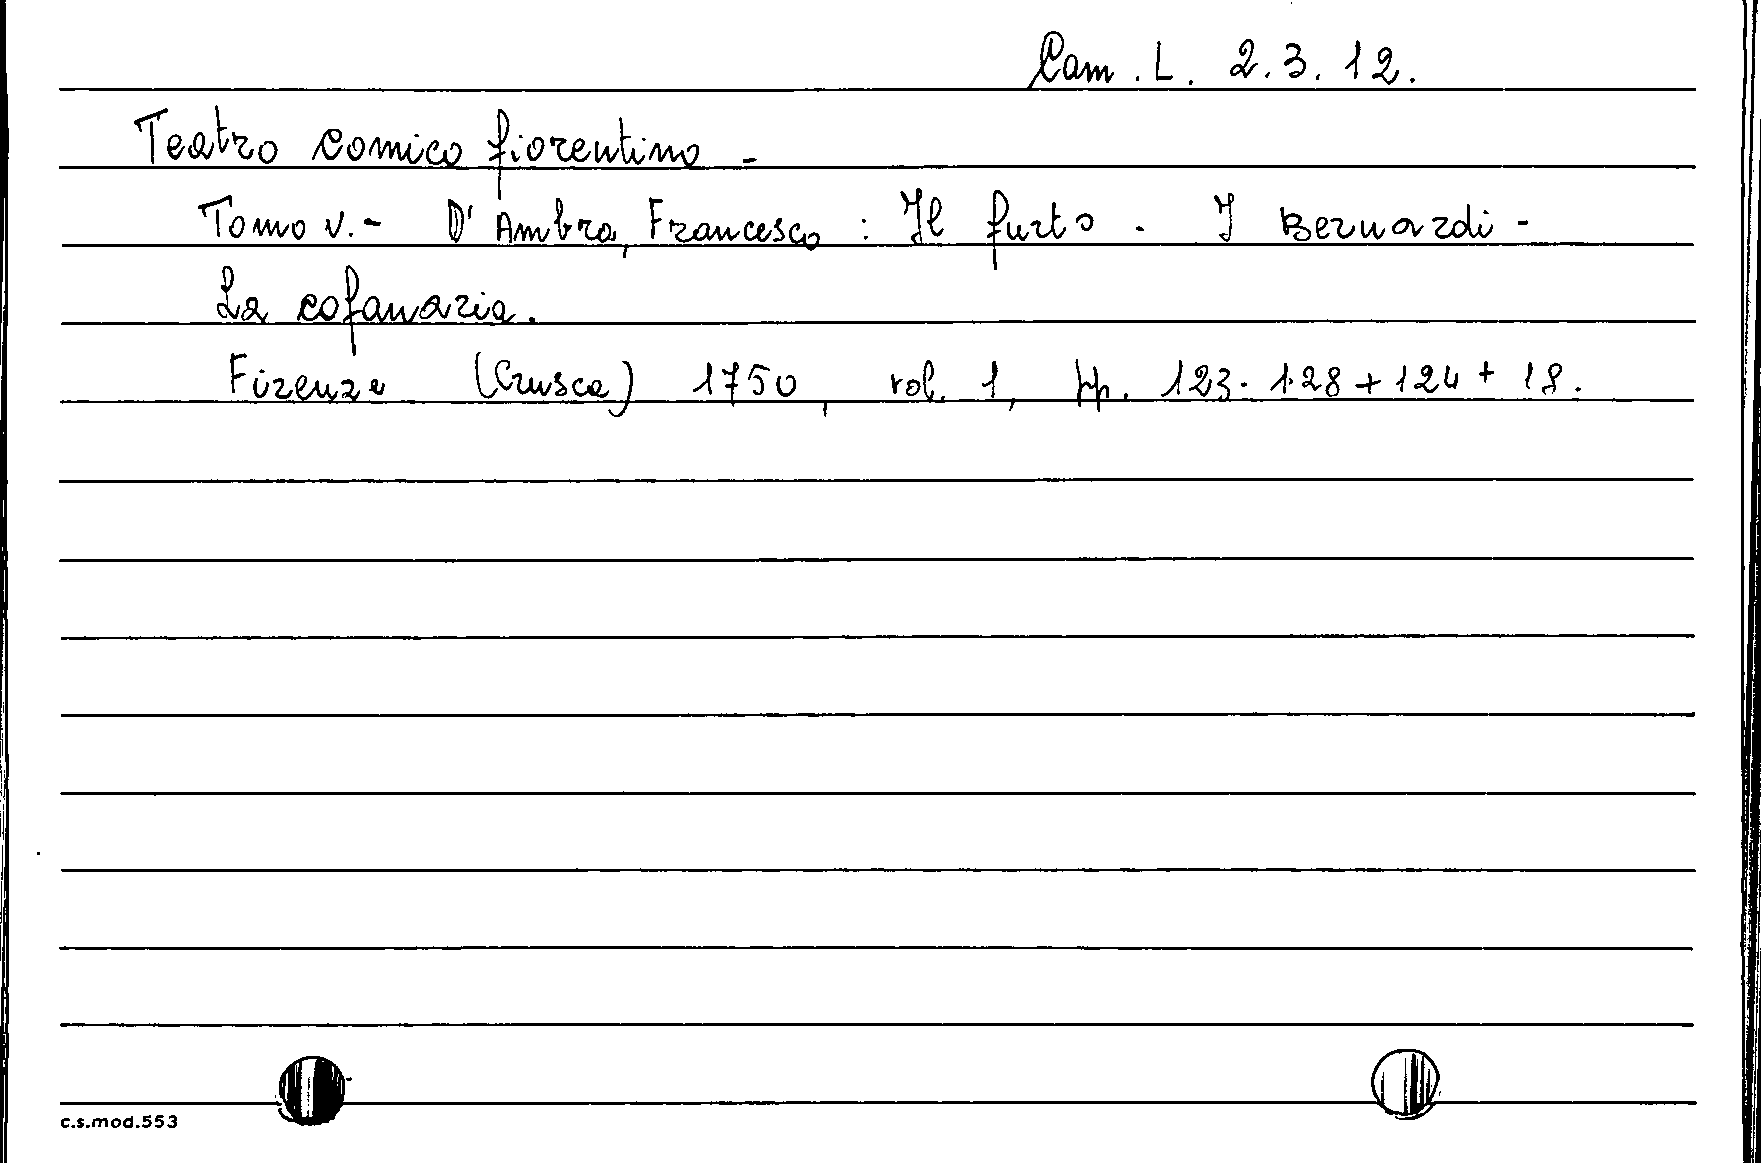 Cam. L. 2.3.12.
Teatro comico fiorentino -
Tomo V. - D'Ambra, Francesco : Il furto . I Bernardi -
La cofanaria.
Firenze (Crusca) 1750, vol. 1, pp. 123. 128 + 124 + 18.
c.s.mod.553